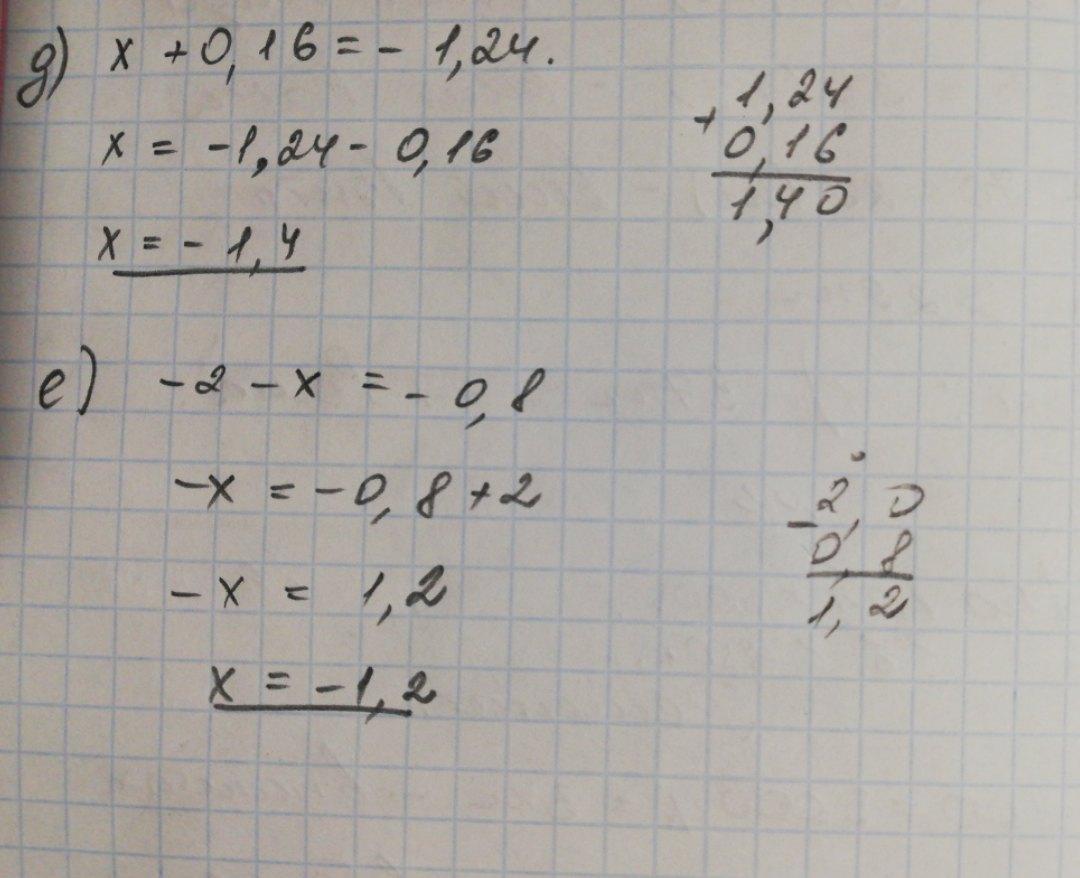 д) x + 0,16 = - 1,24.
x = -1,24 - 0,16
x = - 1,4
+ 1,24
0,16
1,40
е) -2 - x = - 0,8
-x = -0,8 + 2
-x = 1,2
x = -1,2
- 2,0
0,8
1,2